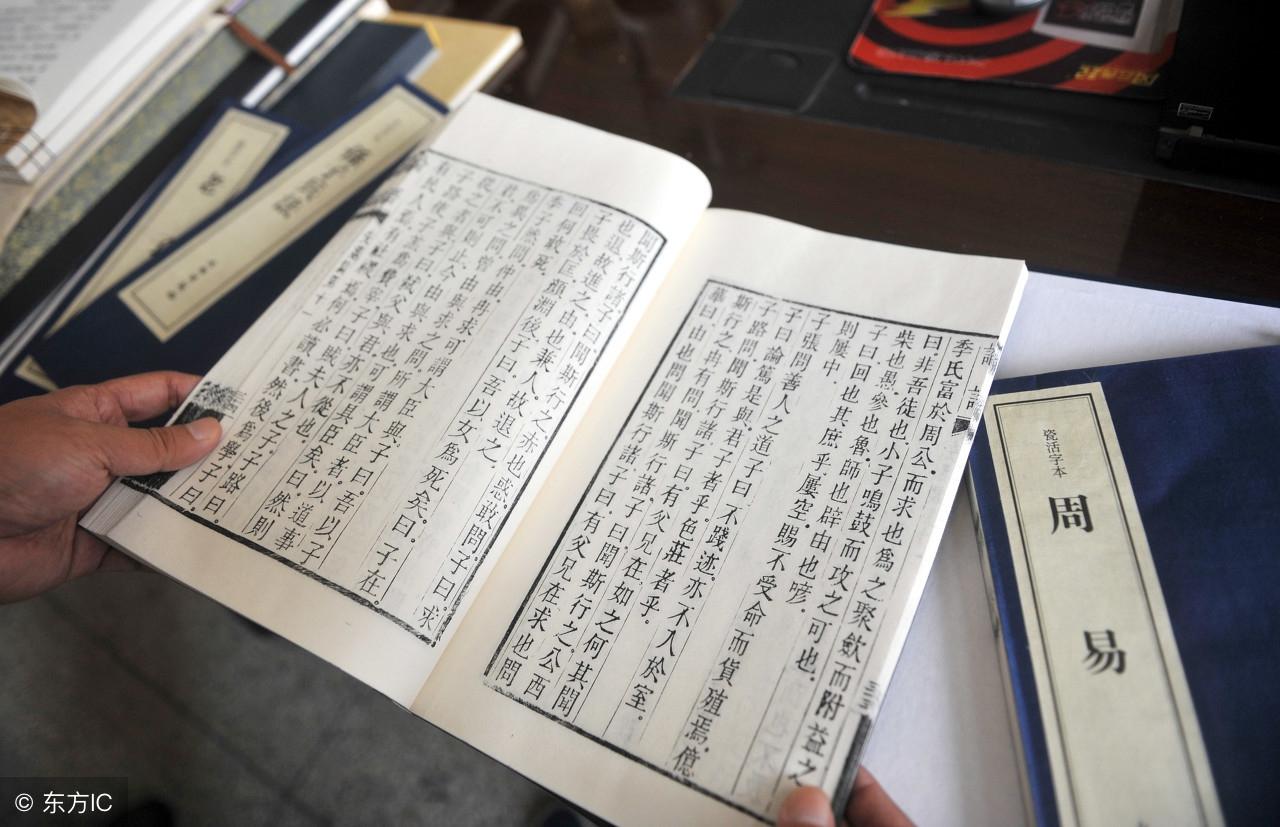 季氏富於周公。而求也爲之聚斂而附益之
曰非吾徒也。小子鳴鼓而攻之可也。
柴也愚。參也魯。師也辟。由也喭。
子曰。回也其庶乎。屢空。賜不受命。而貨殖焉。億
則屢中。
子張問善人之道。子曰。不踐迹。亦不入於室。
子曰。論篤是與。君子者乎。色莊者乎。
子路問。聞斯行諸。子曰。有父兄在。如之何其聞
斯行之。冉有問。聞斯行諸。子曰。聞斯行之。公西
華曰。由也問聞斯行諸。子曰。有父兄在。求也問
聞斯行諸。子曰。聞斯行之。赤也惑。敢問。子曰。求
也退。故進之。由也兼人。故退之。
子畏於匡。顏淵後。子曰。吾以女爲死矣。曰。子在。
回何敢死。
季子然問。仲由冉求可謂大臣與。子曰。吾以子
爲異之問。曾由與求之問。所謂大臣者。以道事
君。不可則止。今由與求也。可謂具臣矣。曰。然則
從之者與。子曰。弑父與君。亦不從也。
子路使子羔爲費宰。子曰。賊夫人之子。子路曰。
有民人焉。有社稷焉。何必讀書。然後爲學。子曰。
瓷活字本
周易
© 东方IC